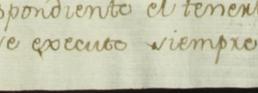 spondiente el tener
se executo siempre